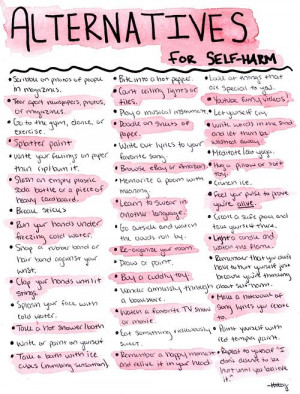 ALTERNATIVES
FOR SELF-HARM
• Scribble on photos of people
in magazines.
• Tear apart newspapers, photos,
or magazines.
• Go to the gym, dance, or
exercise.
• Splatter paint
• Write your feelings on paper
then rip/burn it.
• Slash an empty plastic
soda bottle or a piece of
heavy cardboard.
• Break sticks
• Run your hands under
freezing cold water.
• Snap a rubber band or
hair band against your
wrist.
• Clap your hands until it
stings.
• Splash your face with
cold water.
• Take a hot shower/bath
• Write or paint on yourself
• Take a bath with ice
cubes
• Bite into a hot pepper.
• Count ceiling lights or
tiles.
• Play a musical instrument
• Doodle on sheets of
paper.
• Write out lyrics to your
favorite song.
• Browse eBay or Amazon
• Memorize a poem with
meaning
• Learn to swear in
another language
• Go outside and watch
the clouds roll by.
• Re-organize your room.
• Draw or paint.
• Buy a cuddly toy.
• Wander aimlessly through
a bookstore.
• Watch a favorite TV show
or movie.
• Eat something ridiculously
sweet.
• Remember a happy moment
and relive it in your head
• Look at things that
are special to you.
• Youtube funny videos!
• Let yourself cry
and let them be
washed away.
• Meditate / do yoga.
• Hug a pillow or soft
toy.
• Crunch ice.
• Feel your pulse to prove
you're alive.
• Create a safe place and
take yourself there.
• Light a candle and
watch the flame.
• Remember that you don't
have to hurt yourself just
because you're thinking
about self harm.
• Make a notebook of
song lyrics you relate
to.
• Paint yourself with
red tempra paint.
• Repeat to yourself "I
don't deserve to be
hurt" until you believe
it."